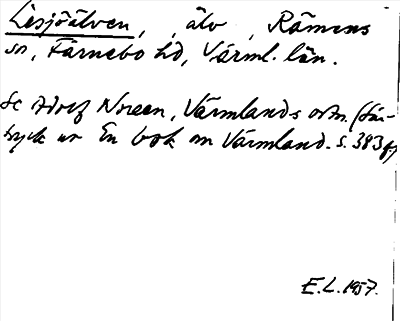 Lesjöälven, älv, Rämens
sn, Färnebo hd, Värml. län.
Se Adolf Noreen, Värmlands ortn. (Sär-
tryck ur En bok om Värmland. s. 383 f.)
E.L. 1957.